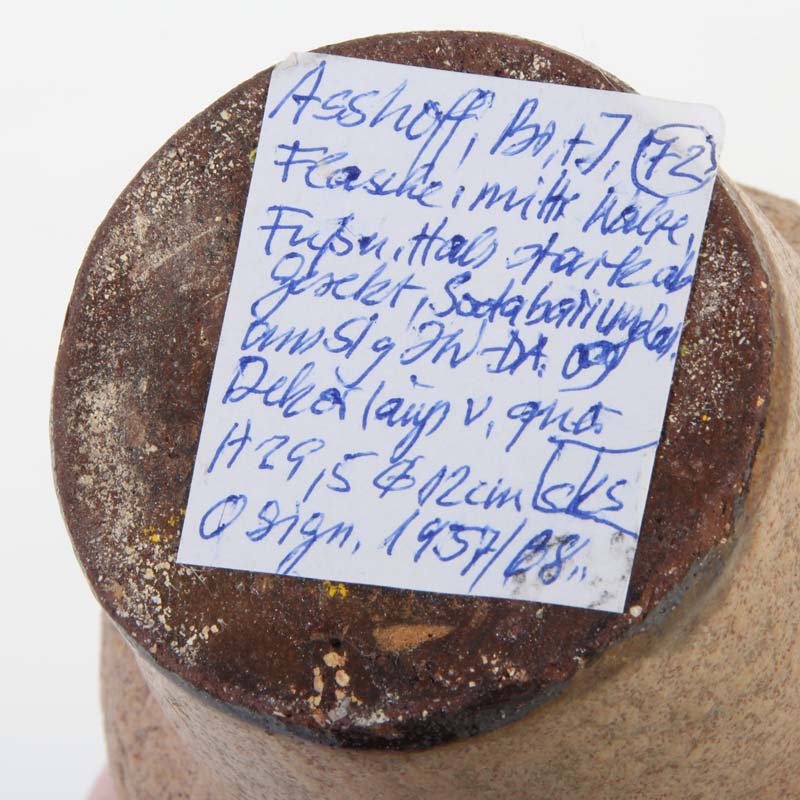 Asshoff, Br.+J. 72
Flasche, mittl. Walze,
Fußu. Hals stark ab
gesetzt, Sodabariumglas.
Dekor längs v. quer
H 29,5 Ø 12cm cks
O sign. 1957/58..